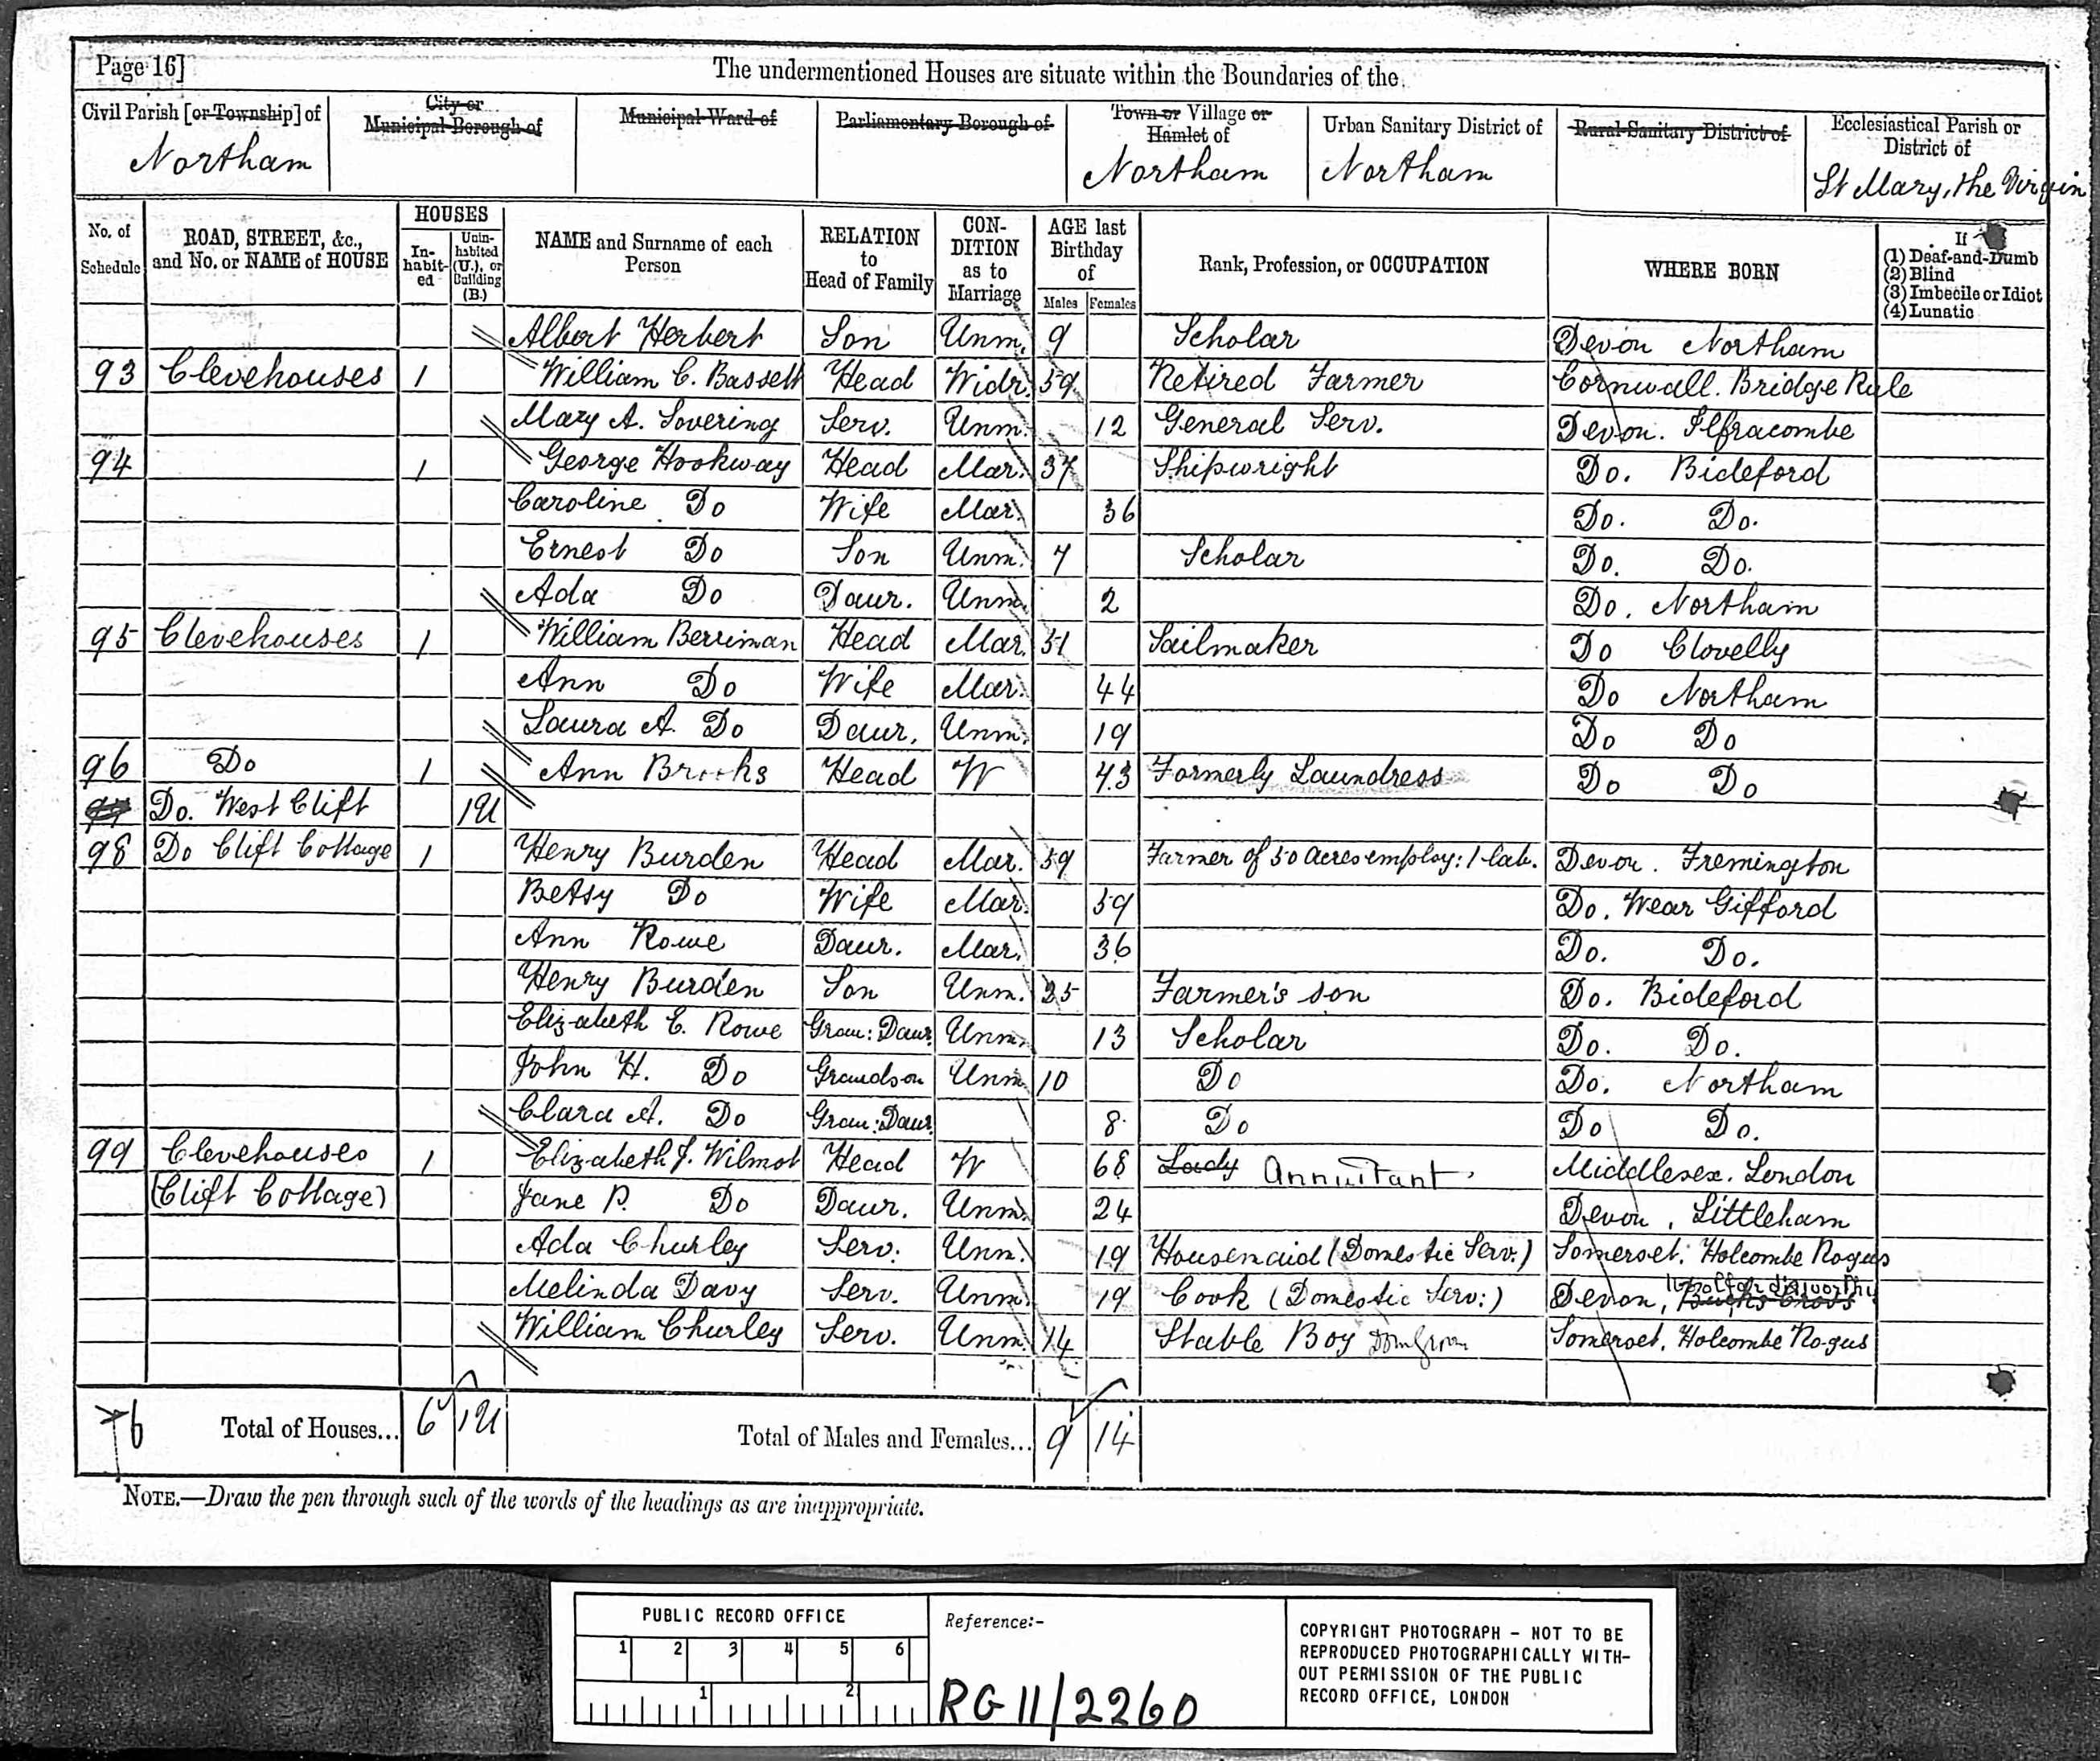 Page 16]
The undermentioned Houses are situate within the Boundaries of the
Civil Parish [or Township] of
Northam
City or
Municipal Borough of
Municipal Ward of
Parliamentary Borough of
Town or Village or
Hamlet of
Northam
Urban Sanitary District of
Northam
Rural Sanitary District of
Ecclesiastical Parish or
District of
St Mary, the Virgin
No. of
Schedule
ROAD, STREET, &c.,
and No. or NAME of HOUSE
HOUSES
In-
habit-
ed
Unin-
habited
(U.), or
Building
(B.)
NAME and Surname of each
Person
RELATION
to
Head of Family
CON-
DITION
as to
Marriage
AGE last
Birthday
of
Males Females
Rank, Profession, or OCCUPATION
WHERE BORN
If
(1) Deaf-and-Dumb
(2) Blind
(3) Imbecile or Idiot
(4) Lunatic
Albert Herbert Son Unm. 9 Scholar Devon Northam
93 Clevehouses 1 William C. Bassett Head Widr. 59 Retired Farmer Cornwall. Bridge Rule
Mary A. Lovering Serv. Unm. 12 General Serv. Devon. Ilfracombe
94 1 George Hookway Head Mar. 37 Shipwright Do. Bideford
Caroline Do Wife Mar. 36 Do. Do.
Ernest Do Son Unm. 7 Scholar Do. Do.
Ada Do Daur. Unm. 2 Do. Northam
95 Clevehouses 1 William Berriman Head Mar. 51 Sailmaker Do Clovelly
Ann Do Wife Mar. 44 Do Northam
Laura A. Do Daur. Unm. 19 Do Do
96 Do 1 Ann Brooks Head W 43 Formerly Laundress Do Do
Do. West Clift 1U
98 Do Clift Cottage 1 Henry Burden Head Mar. 59 Farmer of 50 acres employ: 1 lab. Devon. Fremington
Betsy Do Wife Mar. 59 Do. Wear Gifford
Ann Rowe Daur. Mar. 36 Do. Do.
Henry Burden Son Unm. 25 Farmer's son Do. Bideford
Elizabeth E. Rowe Gran: Daur. Unm. 13 Scholar Do. Do.
John H. Do Grandson Unm 10 Do Do. Northam
Clara A. Do Gran: Daur. 8 Do Do Do.
99 Clevehouses 1 Elizabeth J. Wilmot Head W 68 Lady Annuitant Middlesex. London
(Clift Cottage) Jane P. Do Daur. Unm. 24 Devon, Littleham
Ada Churley Serv. Unm. 19 Housemaid (Domestic Serv.) Somerset. Holcombe Rogus
Melinda Davy Serv. Unm. 19 Cook (Domestic Serv:) Devon, Bucks Cross
William Churley Serv. Unm. 14 Stable Boy Dom Groom Somerset. Holcombe Rogus
Total of Houses... 6 1U Total of Males and Females... 9 14
NOTE.—Draw the pen through such of the words of the headings as are inappropriate.
PUBLIC RECORD OFFICE
1 2 3 4 5 6
1 2
Reference:-
RG 11/2260
COPYRIGHT PHOTOGRAPH - NOT TO BE
REPRODUCED PHOTOGRAPHICALLY WITH-
OUT PERMISSION OF THE PUBLIC
RECORD OFFICE, LONDON